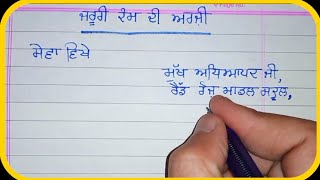 ਜ਼ਰੂਰੀ ਕੰਮ ਦੀ ਅਰਜ਼ੀ
ਸੇਵਾ ਵਿਖੇ
ਮੁੱਖ ਅਧਿਆਪਕ ਜੀ,
ਰੈੱਡ ਰੋਜ਼ ਮਾਡਲ ਸਕੂਲ,